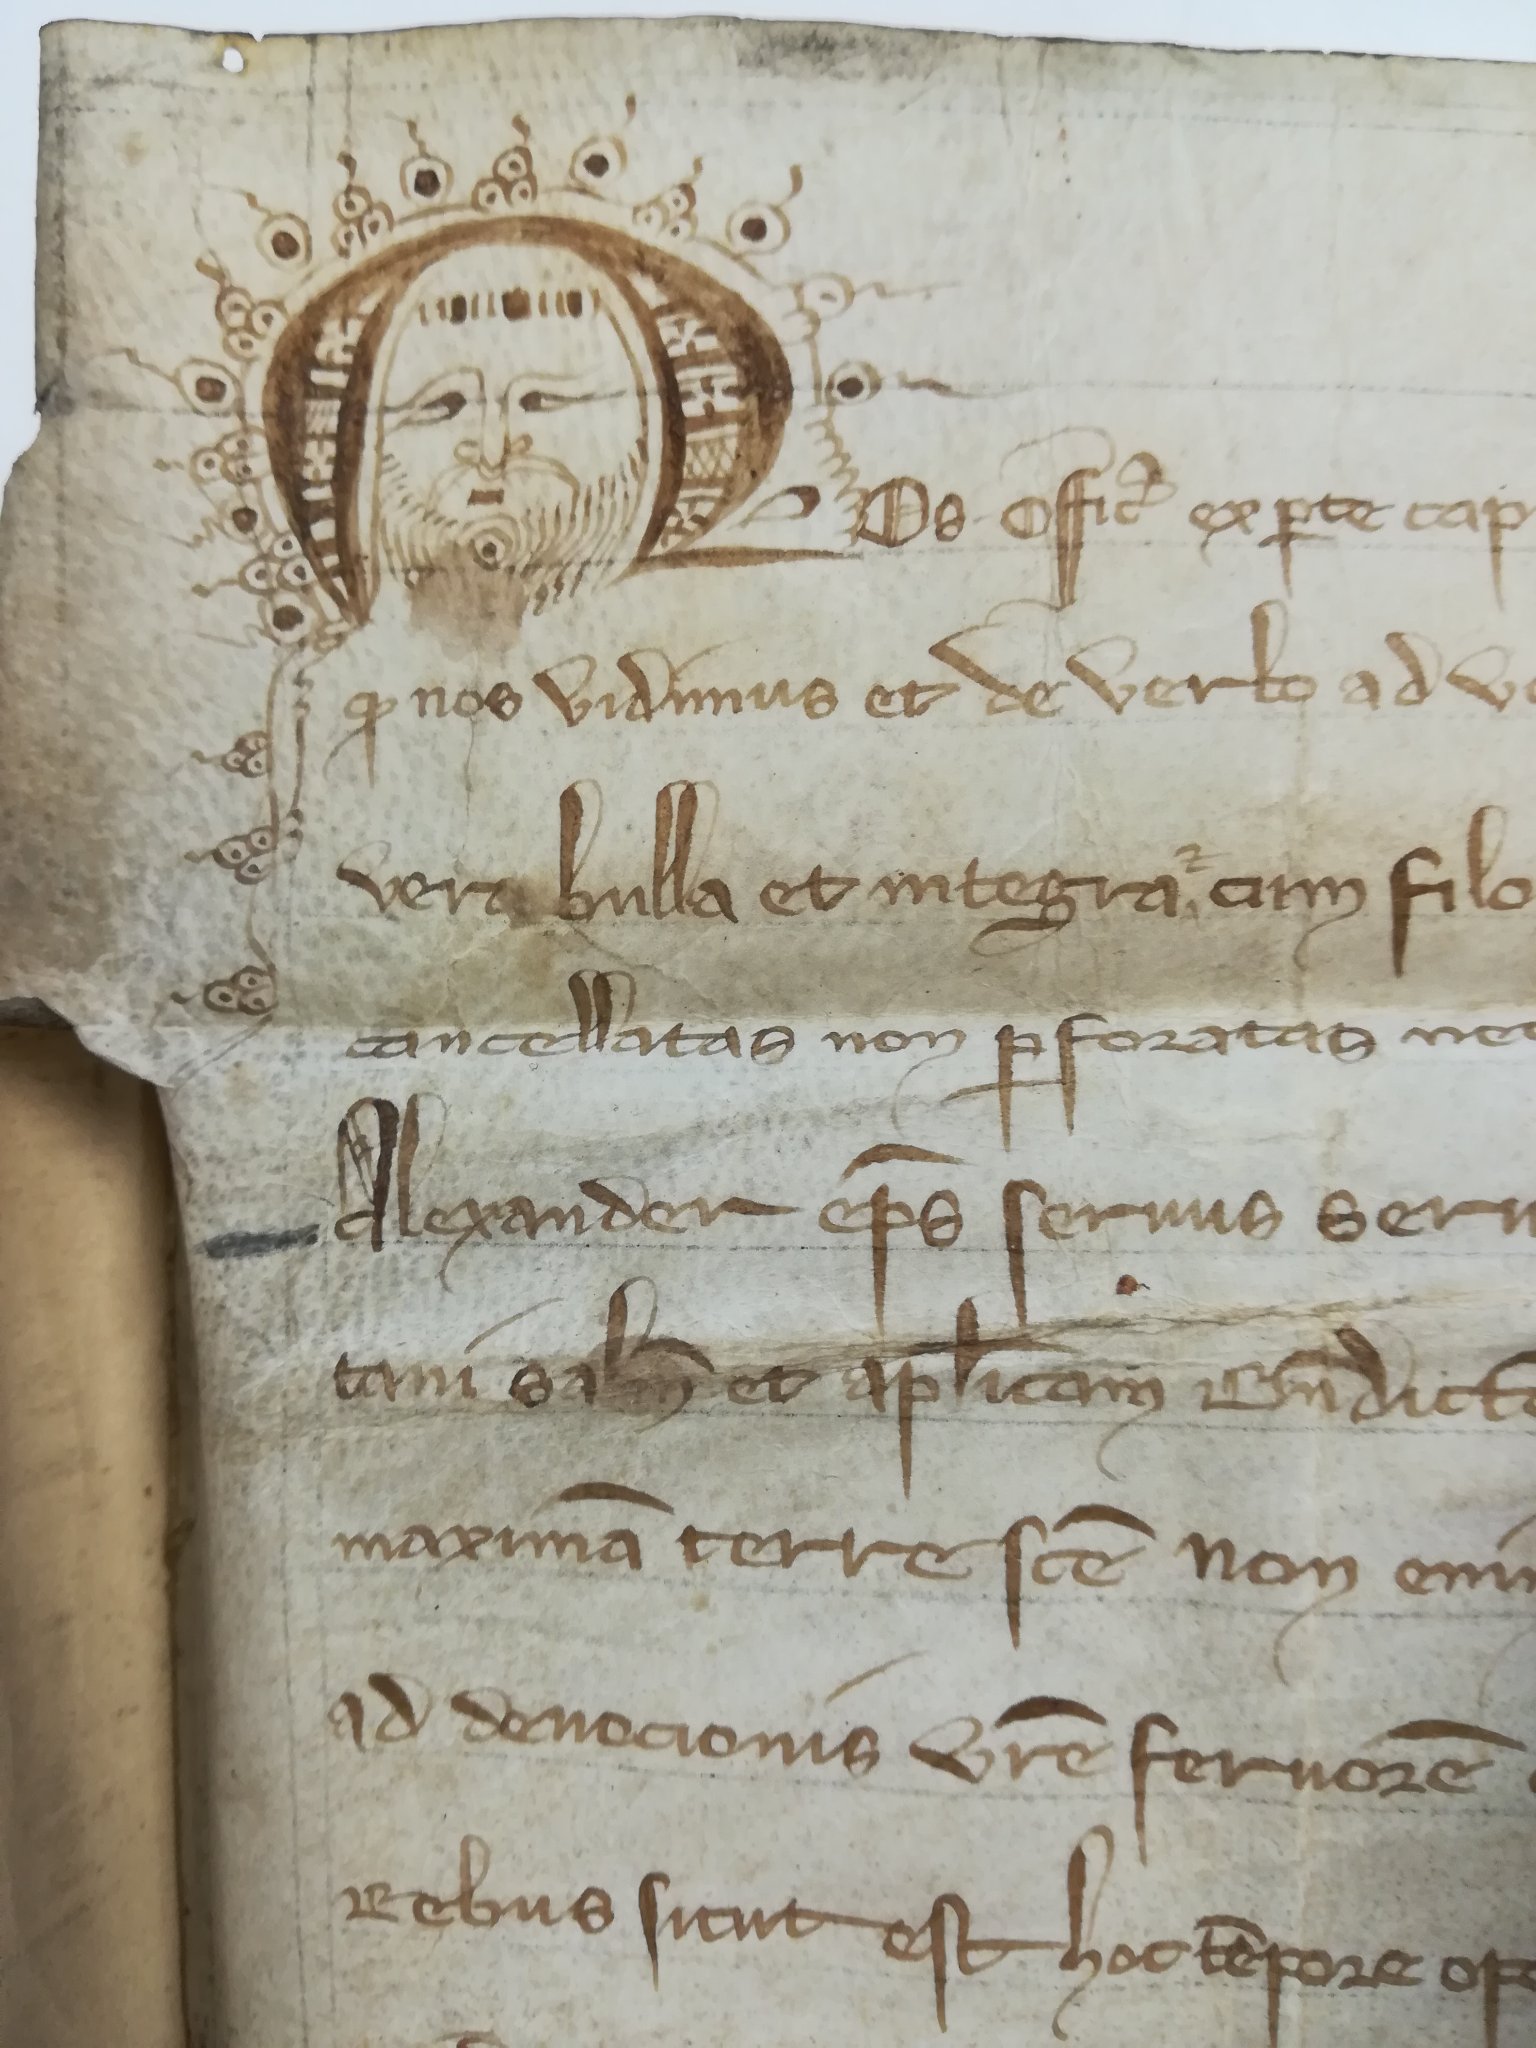 NOs offic̄ ex ꝑte cap
ꝙ nos vidimus et de verbo ad ve
vera bulla et integra cum filo
cancellatas non ꝑforatas nec
Alexander ep̄s seruus seru
tam̄ sal̄m et apl̄icam bn̄dictō
maximā terre sc̄e non enī
ad deuocionis vr̄e feruorē
rebus sicut est hoc tēpore opo